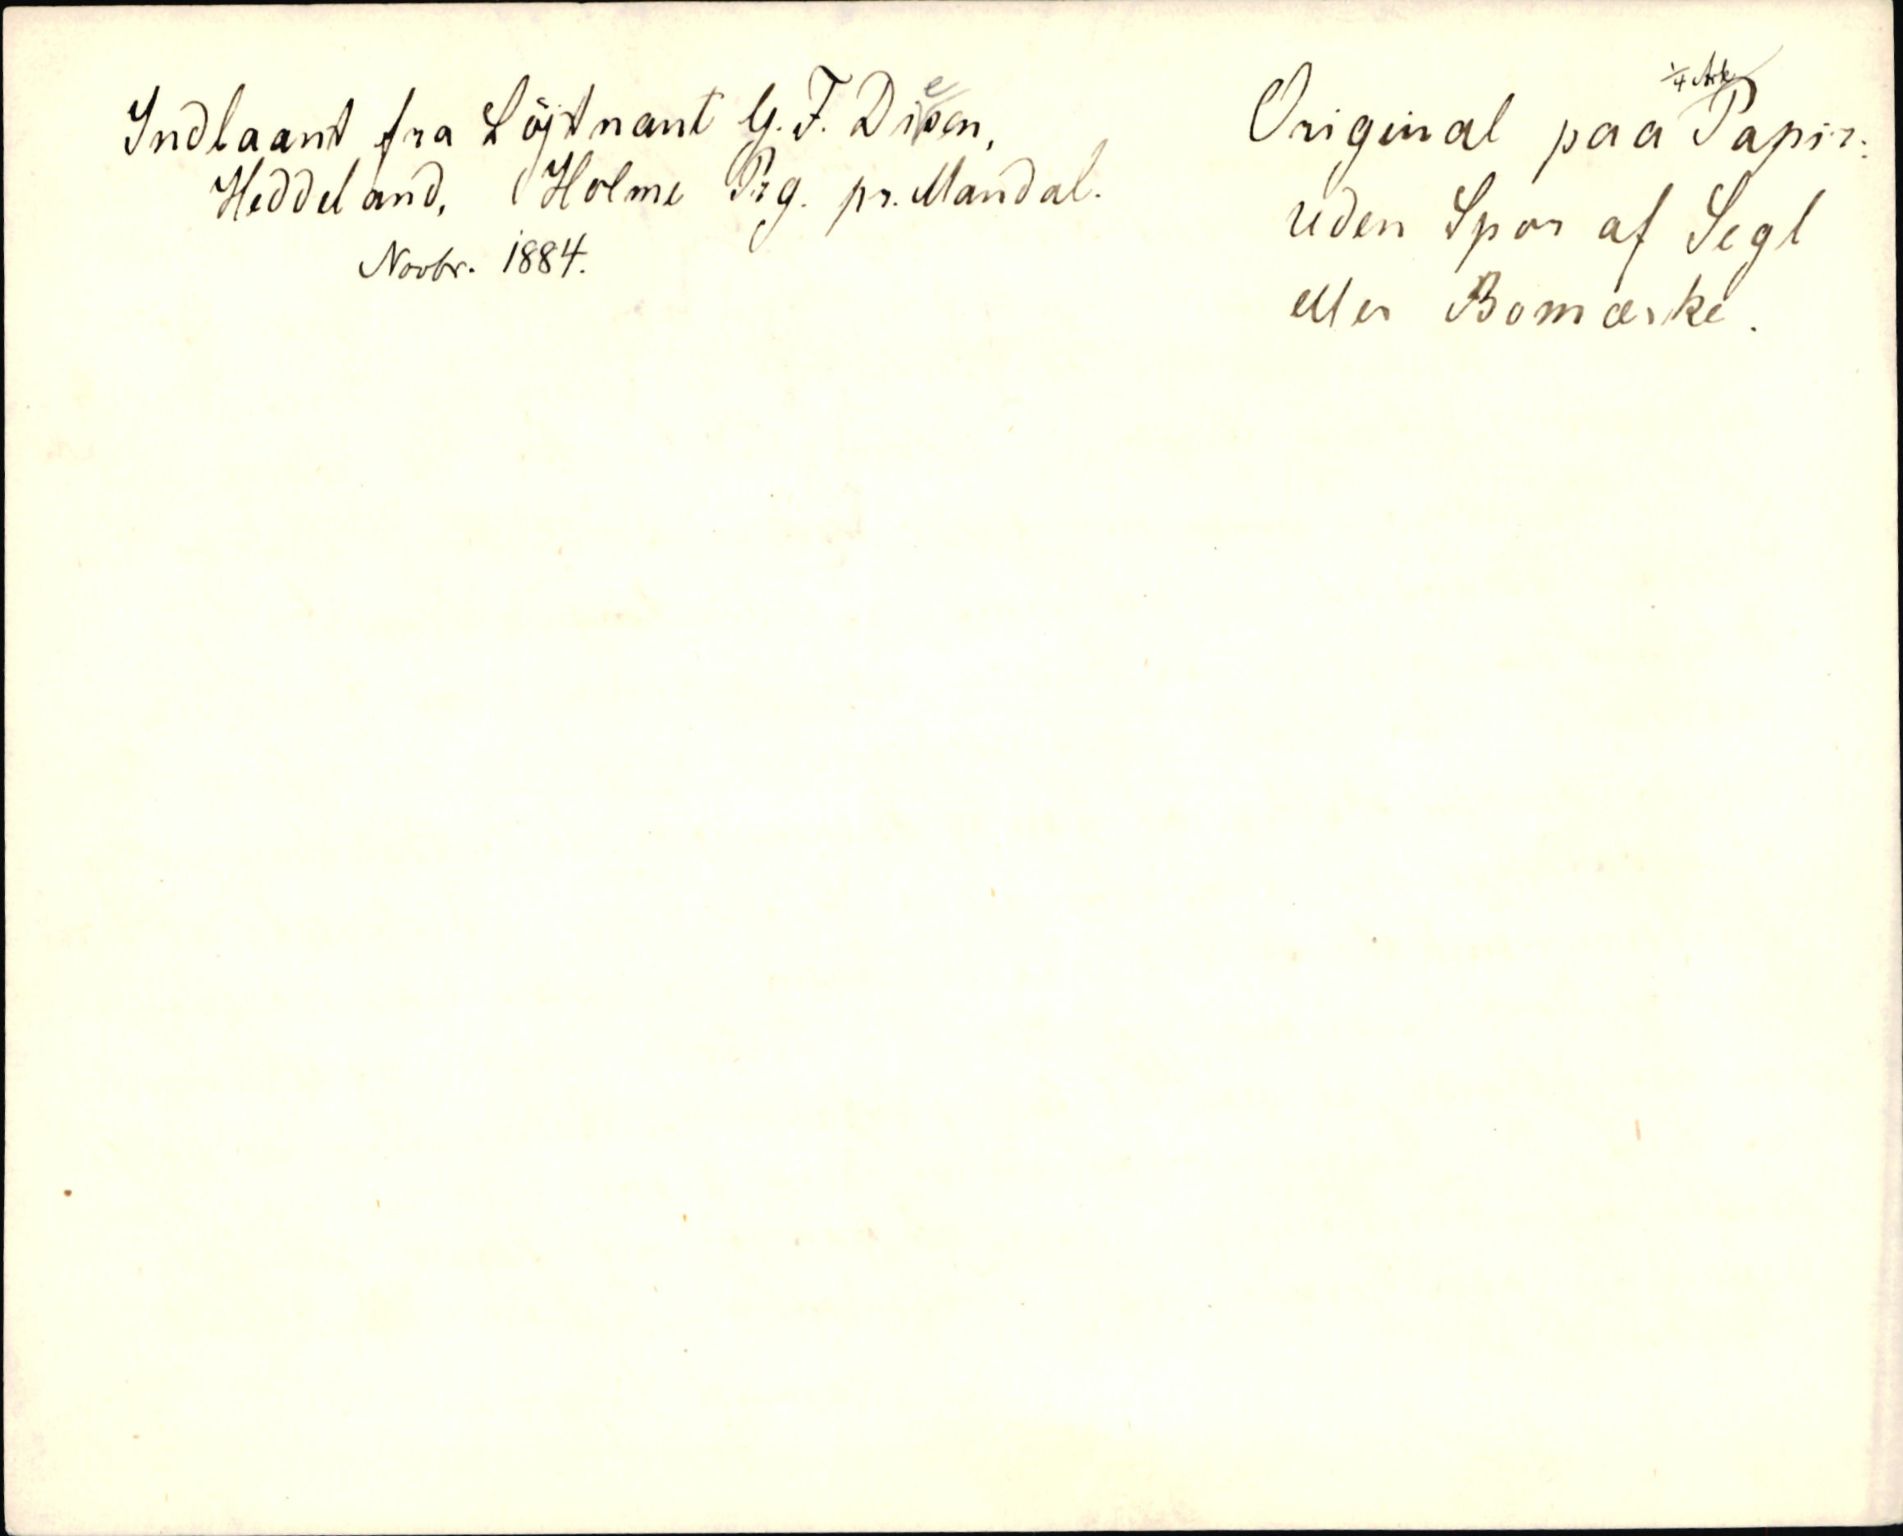 Indlaant fra Löjtnant G. F. Diesen,
Heddeland, Holme Prg. pr. Mandal.
Novbr. 1884.
Original paa 1/4 Ark Papir:
uden Spor af Segl
eller Bomærke.